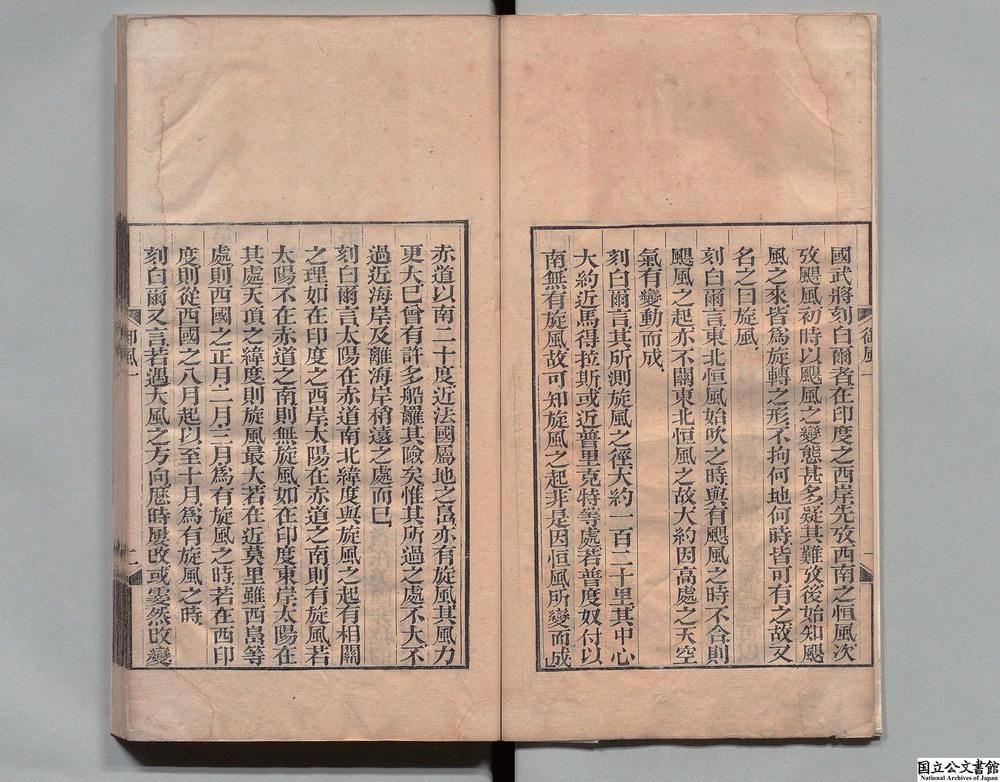 國武將刻白爾者在印度之西岸先攷西南之恒風次
攷颶風初時以颶風之變態甚多疑其難攷後始知颶
風之來皆爲旋轉之形不拘何地何時皆可有之故又
名之曰旋風
刻白爾言東北恒風始吹之時與有颶風之時不合則
颶風之起亦不關東北恒風之故大約因高處之天空
氣有變動而成
刻白爾言其所測旋風之徑大約一百二十里其中心
大約近馬得拉斯或近普里克特等處若普度奴付以
南無有旋風故可知旋風之起非是因恒風所變而成
御風一
一
赤道以南二十度近法國屬地之島亦有旋風其風力
更大已曾有許多船罹其險矣惟其所過之處不大不
過近海岸及離海岸稍遠之處而已
刻白爾言太陽在赤道南北緯度與旋風之起有相關
之理如在印度之西岸太陽在赤道之南則有旋風若
太陽不在赤道之南則無旋風如在印度東岸太陽在
其處天頂之緯度則旋風最大若在近莫里雖西島等
處則西國之正月二月三月爲有旋風之時若在西印
度則從西國之八月起以至十月爲有旋風之時
刻白爾又言若遇大風之方向歷時屢改或霎然改變
御風一
二
国立公文書館
National Archives of Japan